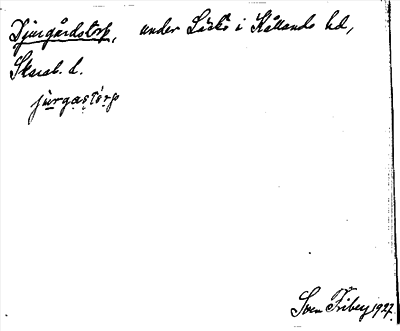 Djurgårdstorp, under Läckö i Kållands hd,
Skarab. l.
jurgastorp
Sven Friberg 1927.